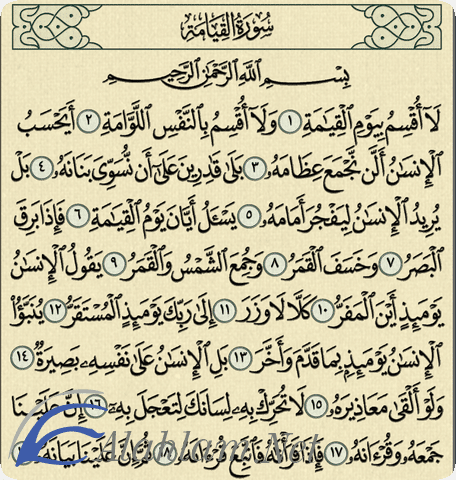 سُورَةُ الْقِيَامَةِ
بِسْمِ ٱللَّهِ ٱلرَّحْمَٰنِ ٱلرَّحِيمِ
لَآ أُقْسِمُ بِيَوْمِ ٱلْقِيَٰمَةِ ١ وَلَآ أُقْسِمُ بِٱلنَّفْسِ ٱللَّوَّامَةِ ٢ أَيَحْسَبُ
ٱلْإِنسَٰنُ أَلَّن نَّجْمَعَ عِظَامَهُۥ ٣ بَلَىٰ قَٰدِرِينَ عَلَىٰٓ أَن نُّسَوِّىَ بَنَانَهُۥ ٤ بَلْ
يُرِيدُ ٱلْإِنسَٰنُ لِيَفْجُرَ أَمَامَهُۥ ٥ يَسْـَٔلُ أَيَّانَ يَوْمُ ٱلْقِيَٰمَةِ ٦ فَإِذَا بَرِقَ
ٱلْبَصَرُ ٧ وَخَسَفَ ٱلْقَمَرُ ٨ وَجُمِعَ ٱلشَّمْسُ وَٱلْقَمَرُ ٩ يَقُولُ ٱلْإِنسَٰنُ
يَوْمَئِذٍ أَيْنَ ٱلْمَفَرُّ ١٠ كَلَّا لَا وَزَرَ ١١ إِلَىٰ رَبِّكَ يَوْمَئِذٍ ٱلْمُسْتَقَرُّ ١٢ يُنَبَّؤُا۟
ٱلْإِنسَٰنُ يَوْمَئِذٍۭ بِمَا قَدَّمَ وَأَخَّرَ ١٣ بَلِ ٱلْإِنسَٰنُ عَلَىٰ نَفْسِهِۦ بَصِيرَةٌ ١٤
وَلَوْ أَلْقَىٰ مَعَاذِيرَهُۥ ١٥ لَا تُحَرِّكْ بِهِۦ لِسَانَكَ لِتَعْجَلَ بِهِۦٓ ١٦ إِنَّ عَلَيْنَا
جَمْعَهُۥ وَقُرْءَانَهُۥ ١٧ فَإِذَا قَرَأْنَٰهُ فَٱتَّبِعْ قُرْءَانَهُۥ ١٨ ثُمَّ إِنَّ عَلَيْنَا بَيَانَهُۥ
Alahlam.Net